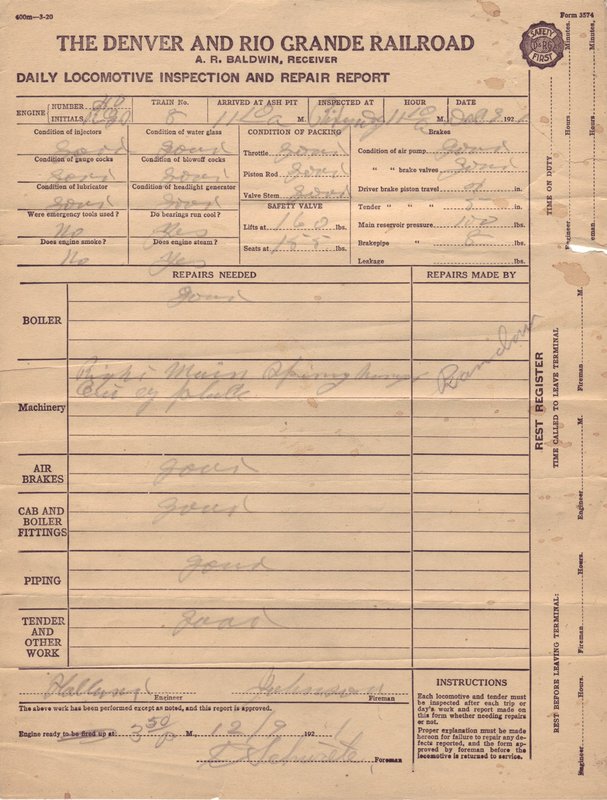 400m—3-20
Form 3574
THE DENVER AND RIO GRANDE RAILROAD
A. R. BALDWIN, RECEIVER
DAILY LOCOMOTIVE INSPECTION AND REPAIR REPORT
SAFETY
D&RG
FIRST
ENGINE NUMBER INITIALS
TRAIN No. 8
ARRIVED AT ASH PIT 11 10 a M.
INSPECTED AT
HOUR 11 10 a M.
DATE 192
Condition of injectors good
Condition of water glass good
Condition of gauge cocks good
Condition of blowoff cocks good
Condition of lubricator good
Condition of headlight generator good
Were emergency tools used? No
Do bearings run cool? Yes
Does engine smoke? No
Does engine steam? Yes
CONDITION OF PACKING
Throttle good
Piston Rod good
Valve Stem good
SAFETY VALVE
Lifts at 160 lbs.
Seats at 155 lbs.
Brakes
Condition of air pump good
" " brake valves good
Driver brake piston travel in.
Tender " " " 5 in.
Main reservoir pressure 100 lbs.
Brakepipe " lbs.
Leakage lbs.
REPAIRS NEEDED
REPAIRS MADE BY
BOILER good
Machinery
Right Main Spring hanger
AIR BRAKES good
CAB AND BOILER FITTINGS good
PIPING good
TENDER AND OTHER WORK good
Engineer
Johnson Fireman
The above work has been performed except as noted, and this report is approved.
Engine ready to be fired up at 3 50 P M., 12/9 192
Foreman
INSTRUCTIONS
Each locomotive and tender must
be inspected after each trip or
day's work and report made on
this form whether needing repairs
or not.
Proper explanation must be made
hereon for failure to repair any de-
fects reported, and the form ap-
proved by foreman before the
locomotive is returned to service.
REST REGISTER
TIME ON DUTY
Engineer Hours Minutes.
Fireman Hours Minutes.
TIME CALLED TO LEAVE TERMINAL
Engineer M.
Fireman M.
REST BEFORE LEAVING TERMINAL:
Engineer Hours.
Fireman Hours.